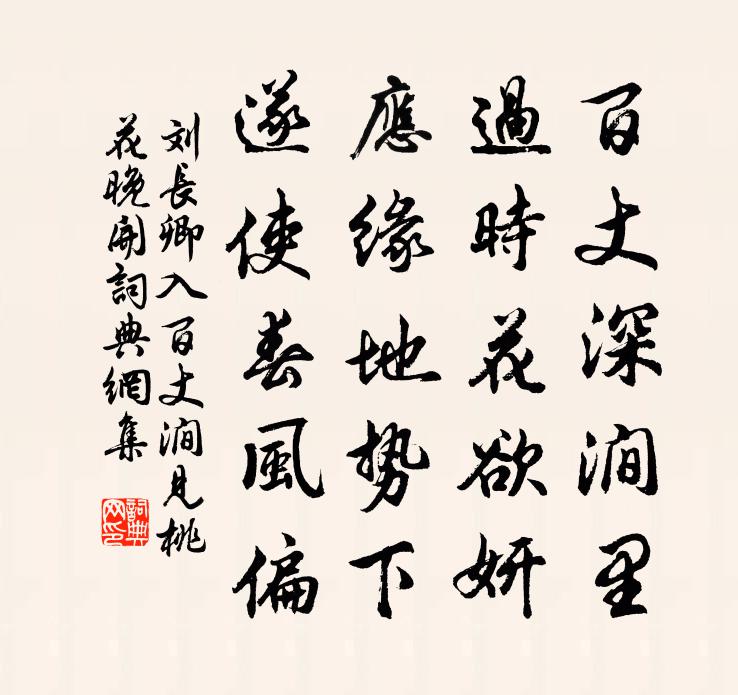 百丈深涧里
過時花欲妍
應緣地势下
遂使春風偏
刘長卿入百丈涧見桃
花晚開詞典網集
詞典
网印